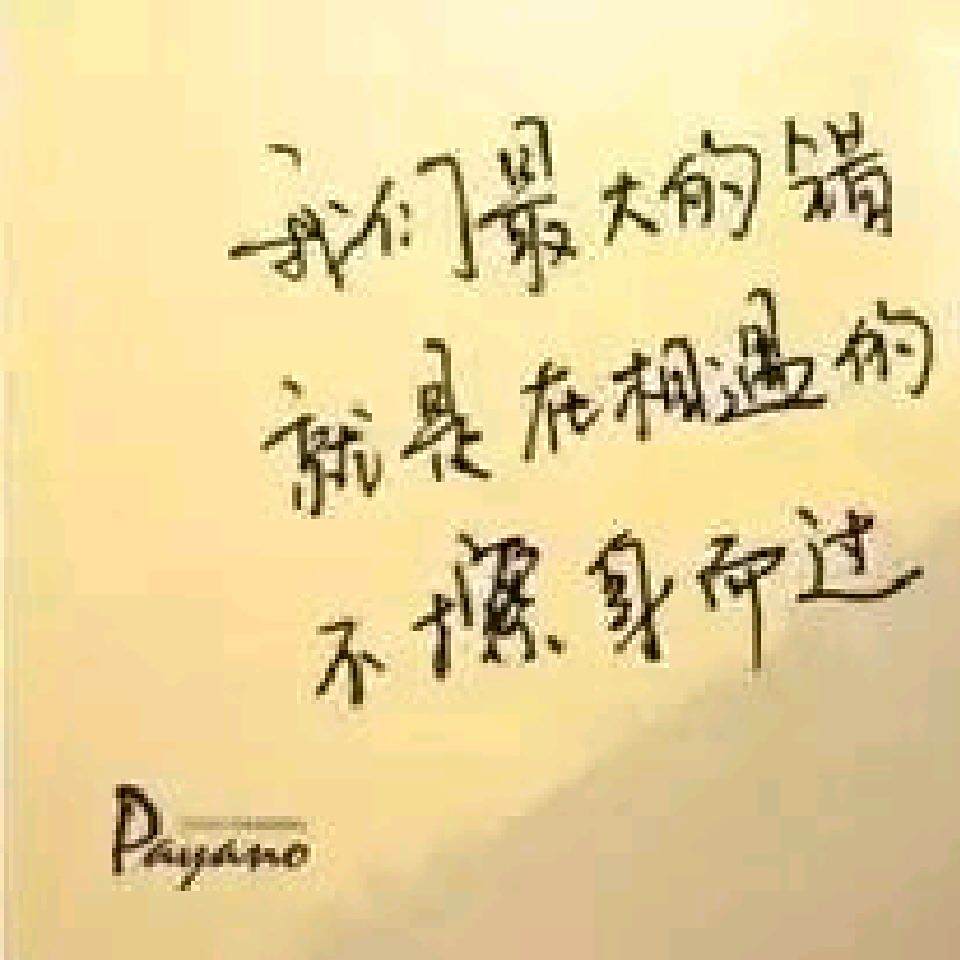 我们最大的错
就是在相遇的
不擦身而过
Payano